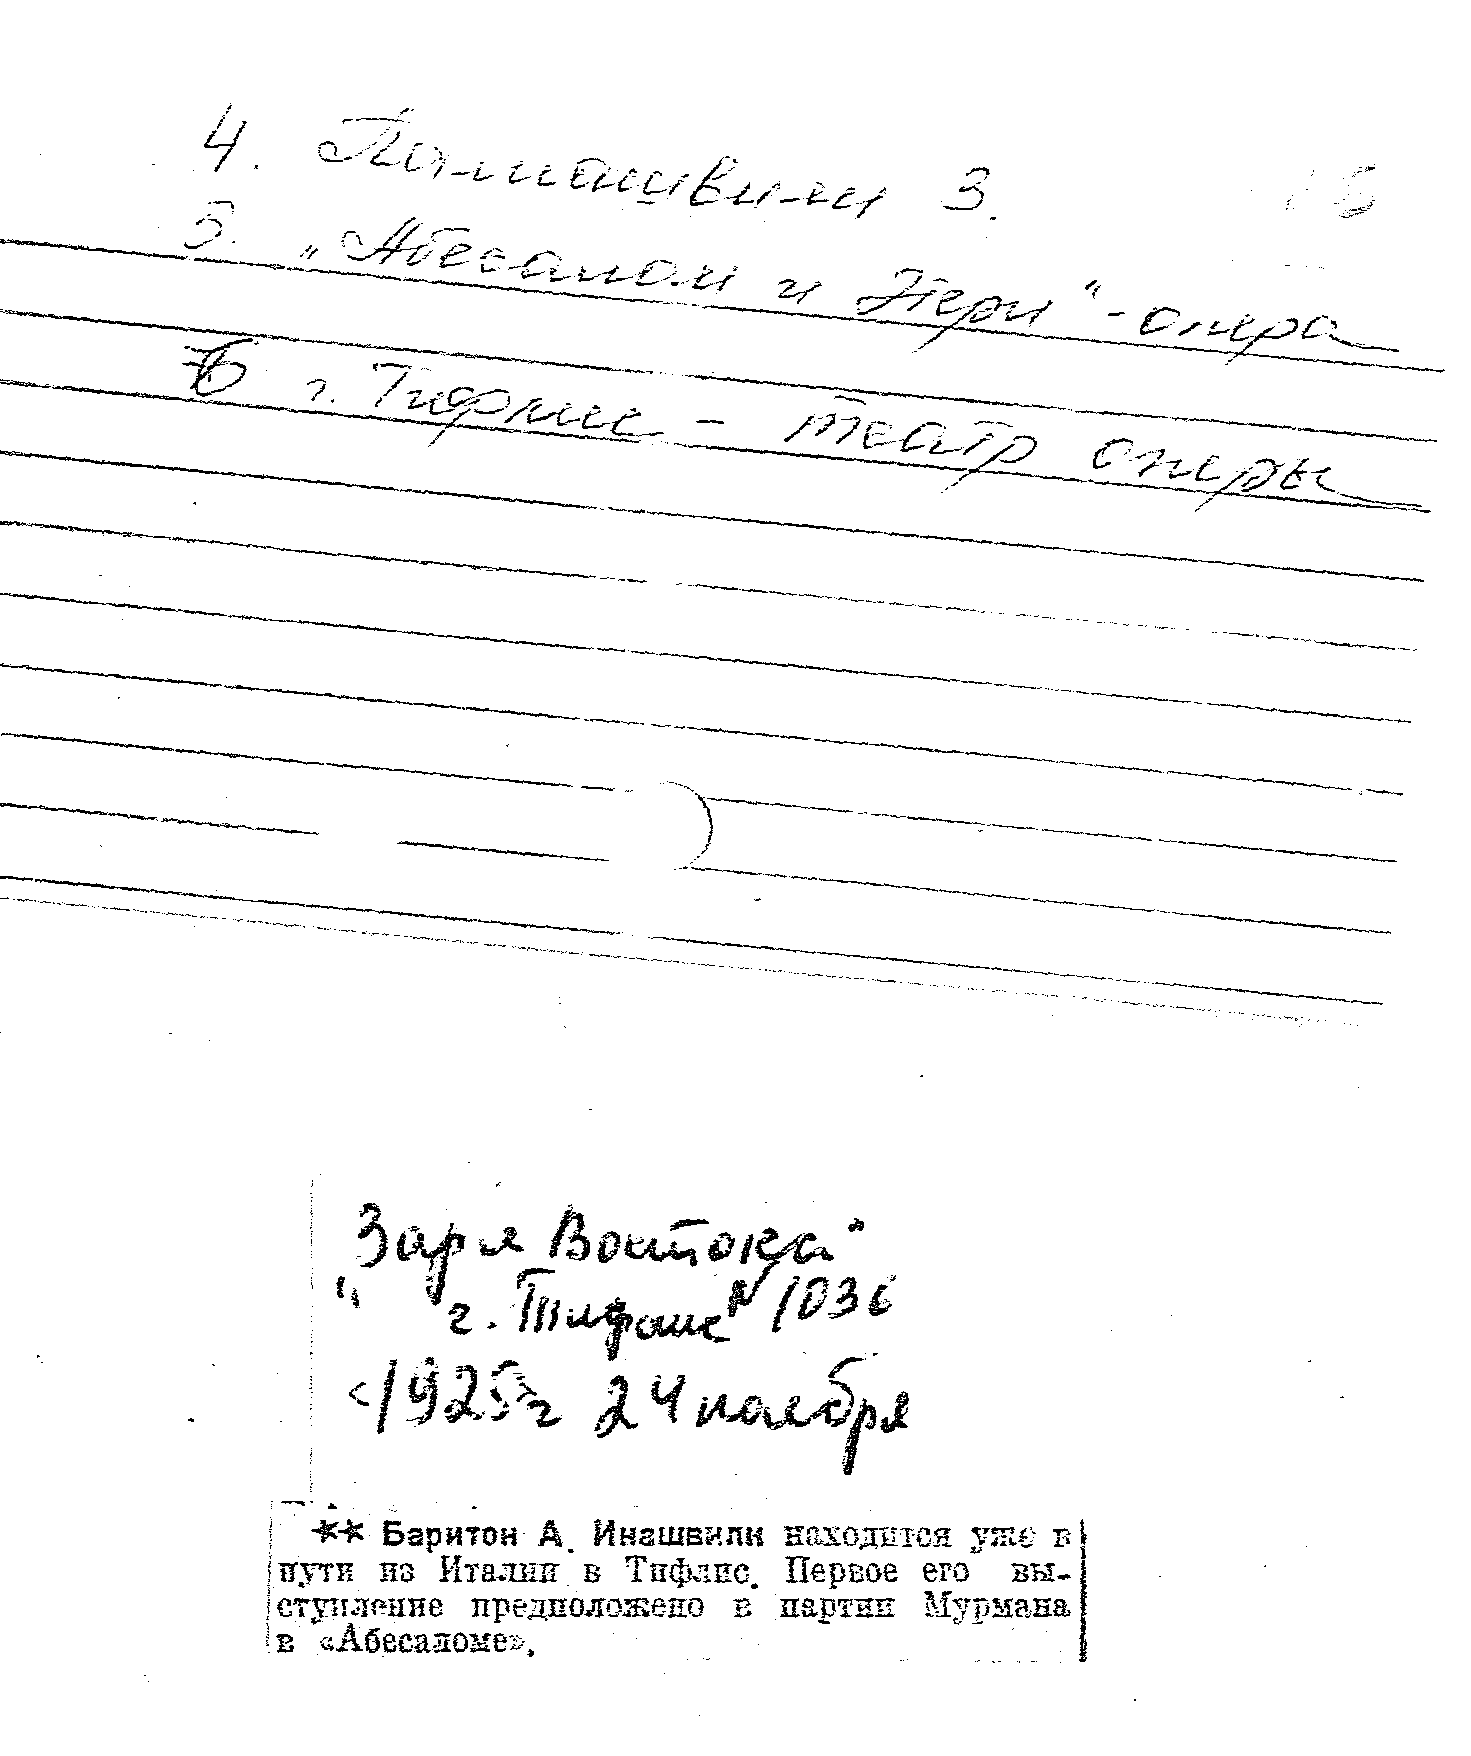 4. Палиашвили З.
5. „Абесалом и Этери“ - опера
6 г. Тифлис - театр оперы
„Заря Востока“
г. Тифлис N 1036
<1925>г 24 ноября
** Баритон А. Инашвили находится уже в
пути из Италии в Тифлис. Первое его вы-
ступление предположено в партии Мурмана
в «Абесаломе».